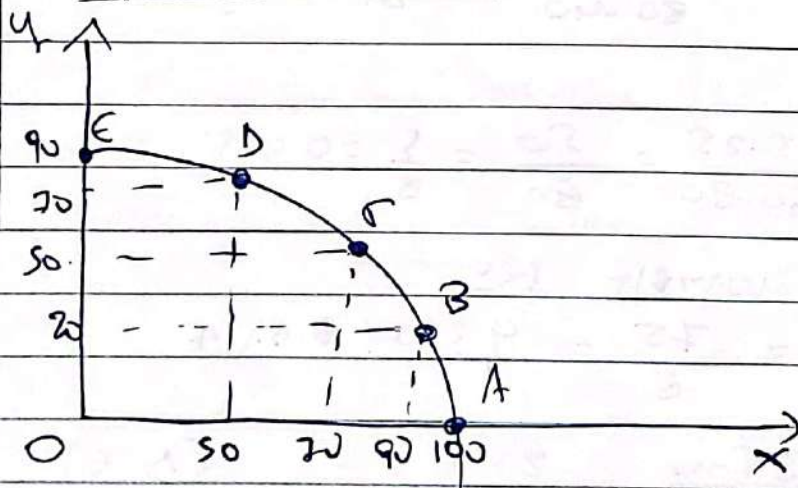 y
90 E
D
70
Γ
50
B
20
A
O 50 70 90 100 X